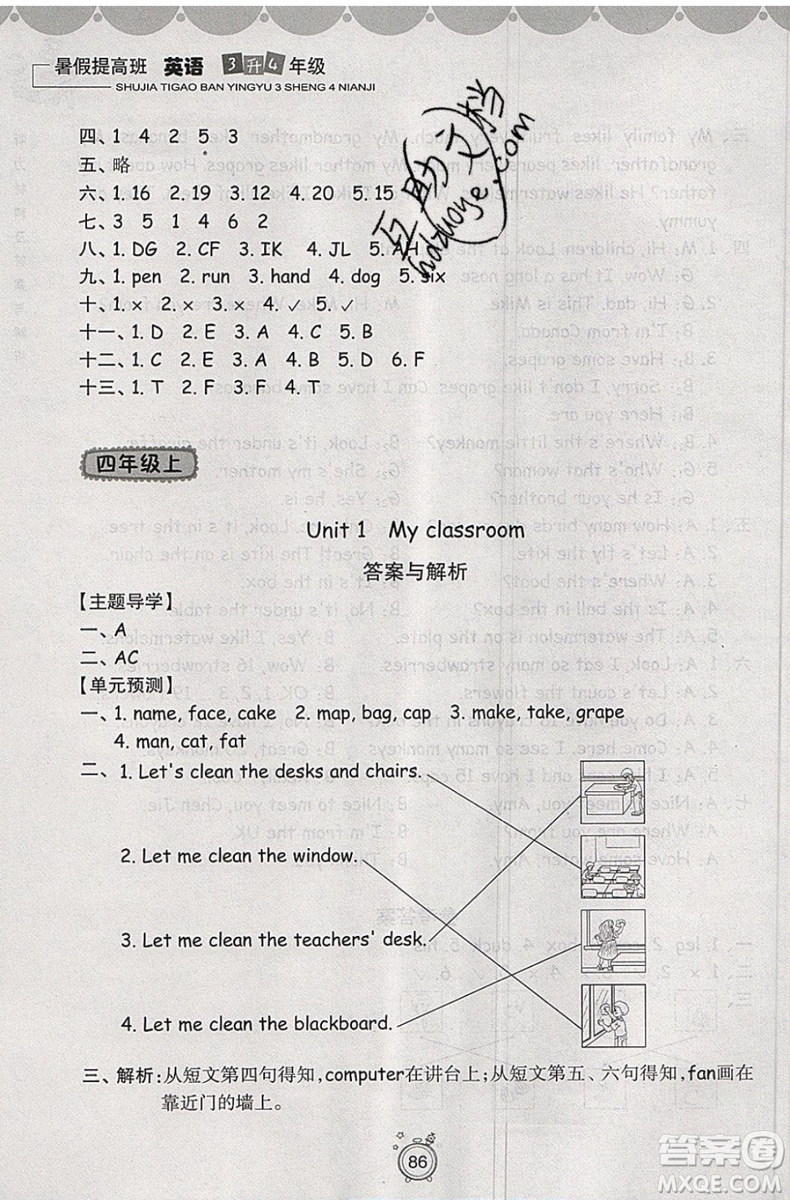 暑假提高班 英语 3升4年级
SHUJIA TIGAO BAN YINGYU 3 SHENG 4 NIANJI
四、1 4 2 5 3
五、略
六、1. 16 2. 19 3. 12 4. 20 5. 15
七、3 5 1 4 6 2
八、1. DG 2. CF 3. IK 4. JL 5. AH
九、1. pen 2. run 3. hand 4. dog 5. six
十、1. × 2. × 3. × 4. ✓ 5. ✓
十一、1. D 2. E 3. A 4. C 5. B
十二、1. C 2. E 3. A 4. B 5. D 6. F
十三、1. T 2. F 3. F 4. T
互助文档
hdzuoye.com
四年级上
Unit 1 My classroom
答案与解析
【主题导学】
一、A
二、AC
【单元预测】
一、1. name, face, cake 2. map, bag, cap 3. make, take, grape
4. man, cat, fat
二、1. Let's clean the desks and chairs.
2. Let me clean the window.
3. Let me clean the teachers' desk.
4. Let me clean the blackboard.
三、解析:从短文第四句得知,computer在讲台上;从短文第五、六句得知,fan画在
靠近门的墙上。
86
答案圈
MXQE.COM